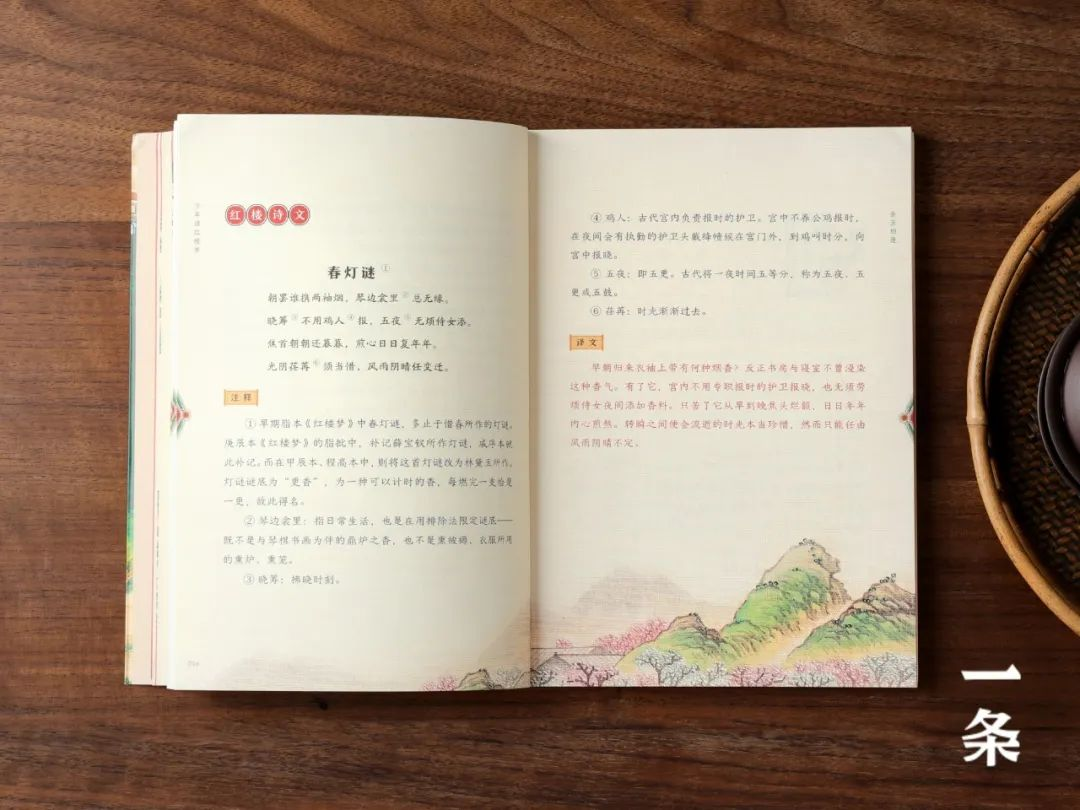 少年读红楼梦
红楼诗文
春灯谜①
朝罢谁携两袖烟，琴边衾里②总无缘。
晓筹③不用鸡人④报，五夜⑤无烦侍女添。
焦首朝朝还暮暮，煎心日日复年年。
光阴荏苒⑥须当惜，风雨阴晴任变迁。
注释
①早期脂本《红楼梦》中春灯谜，多止于惜春所作的灯谜。
庚辰本《红楼梦》的脂批中，补记薛宝钗所作灯谜，戚序本据
此补记。而在甲辰本、程高本中，则将这首灯谜改为林黛玉所作。
灯谜谜底为“更香”，为一种可以计时的香，每燃完一支恰是
一更，故此得名。
②琴边衾里：指日常生活，也是在用排除法限定谜底——
既不是与琴棋书画为伴的鼎炉之香，也不是熏被褥、衣服所用
的熏炉、熏笼。
③晓筹：拂晓时刻。
④鸡人：古代宫内负责报时的护卫。宫中不养公鸡报时，
在夜间会有执勤的护卫头戴绛帻候在宫门外，到鸡叫时分，向
宫中报晓。
⑤五夜：即五更。古代将一夜时间五等分，称为五夜、五
更或五鼓。
⑥荏苒：时光渐渐过去。
译文
早朝归来衣袖上带有何种烟香？反正书房与寝室不曾浸染
这种香气。有了它，宫内不用专职报时的护卫报晓，也无须劳
烦侍女夜间添加香料。只苦了它从早到晚焦头烂额，日日年年
内心煎熬。转瞬之间便会流逝的时光本当珍惜，然而只能任由
风雨阴晴不定。
一条